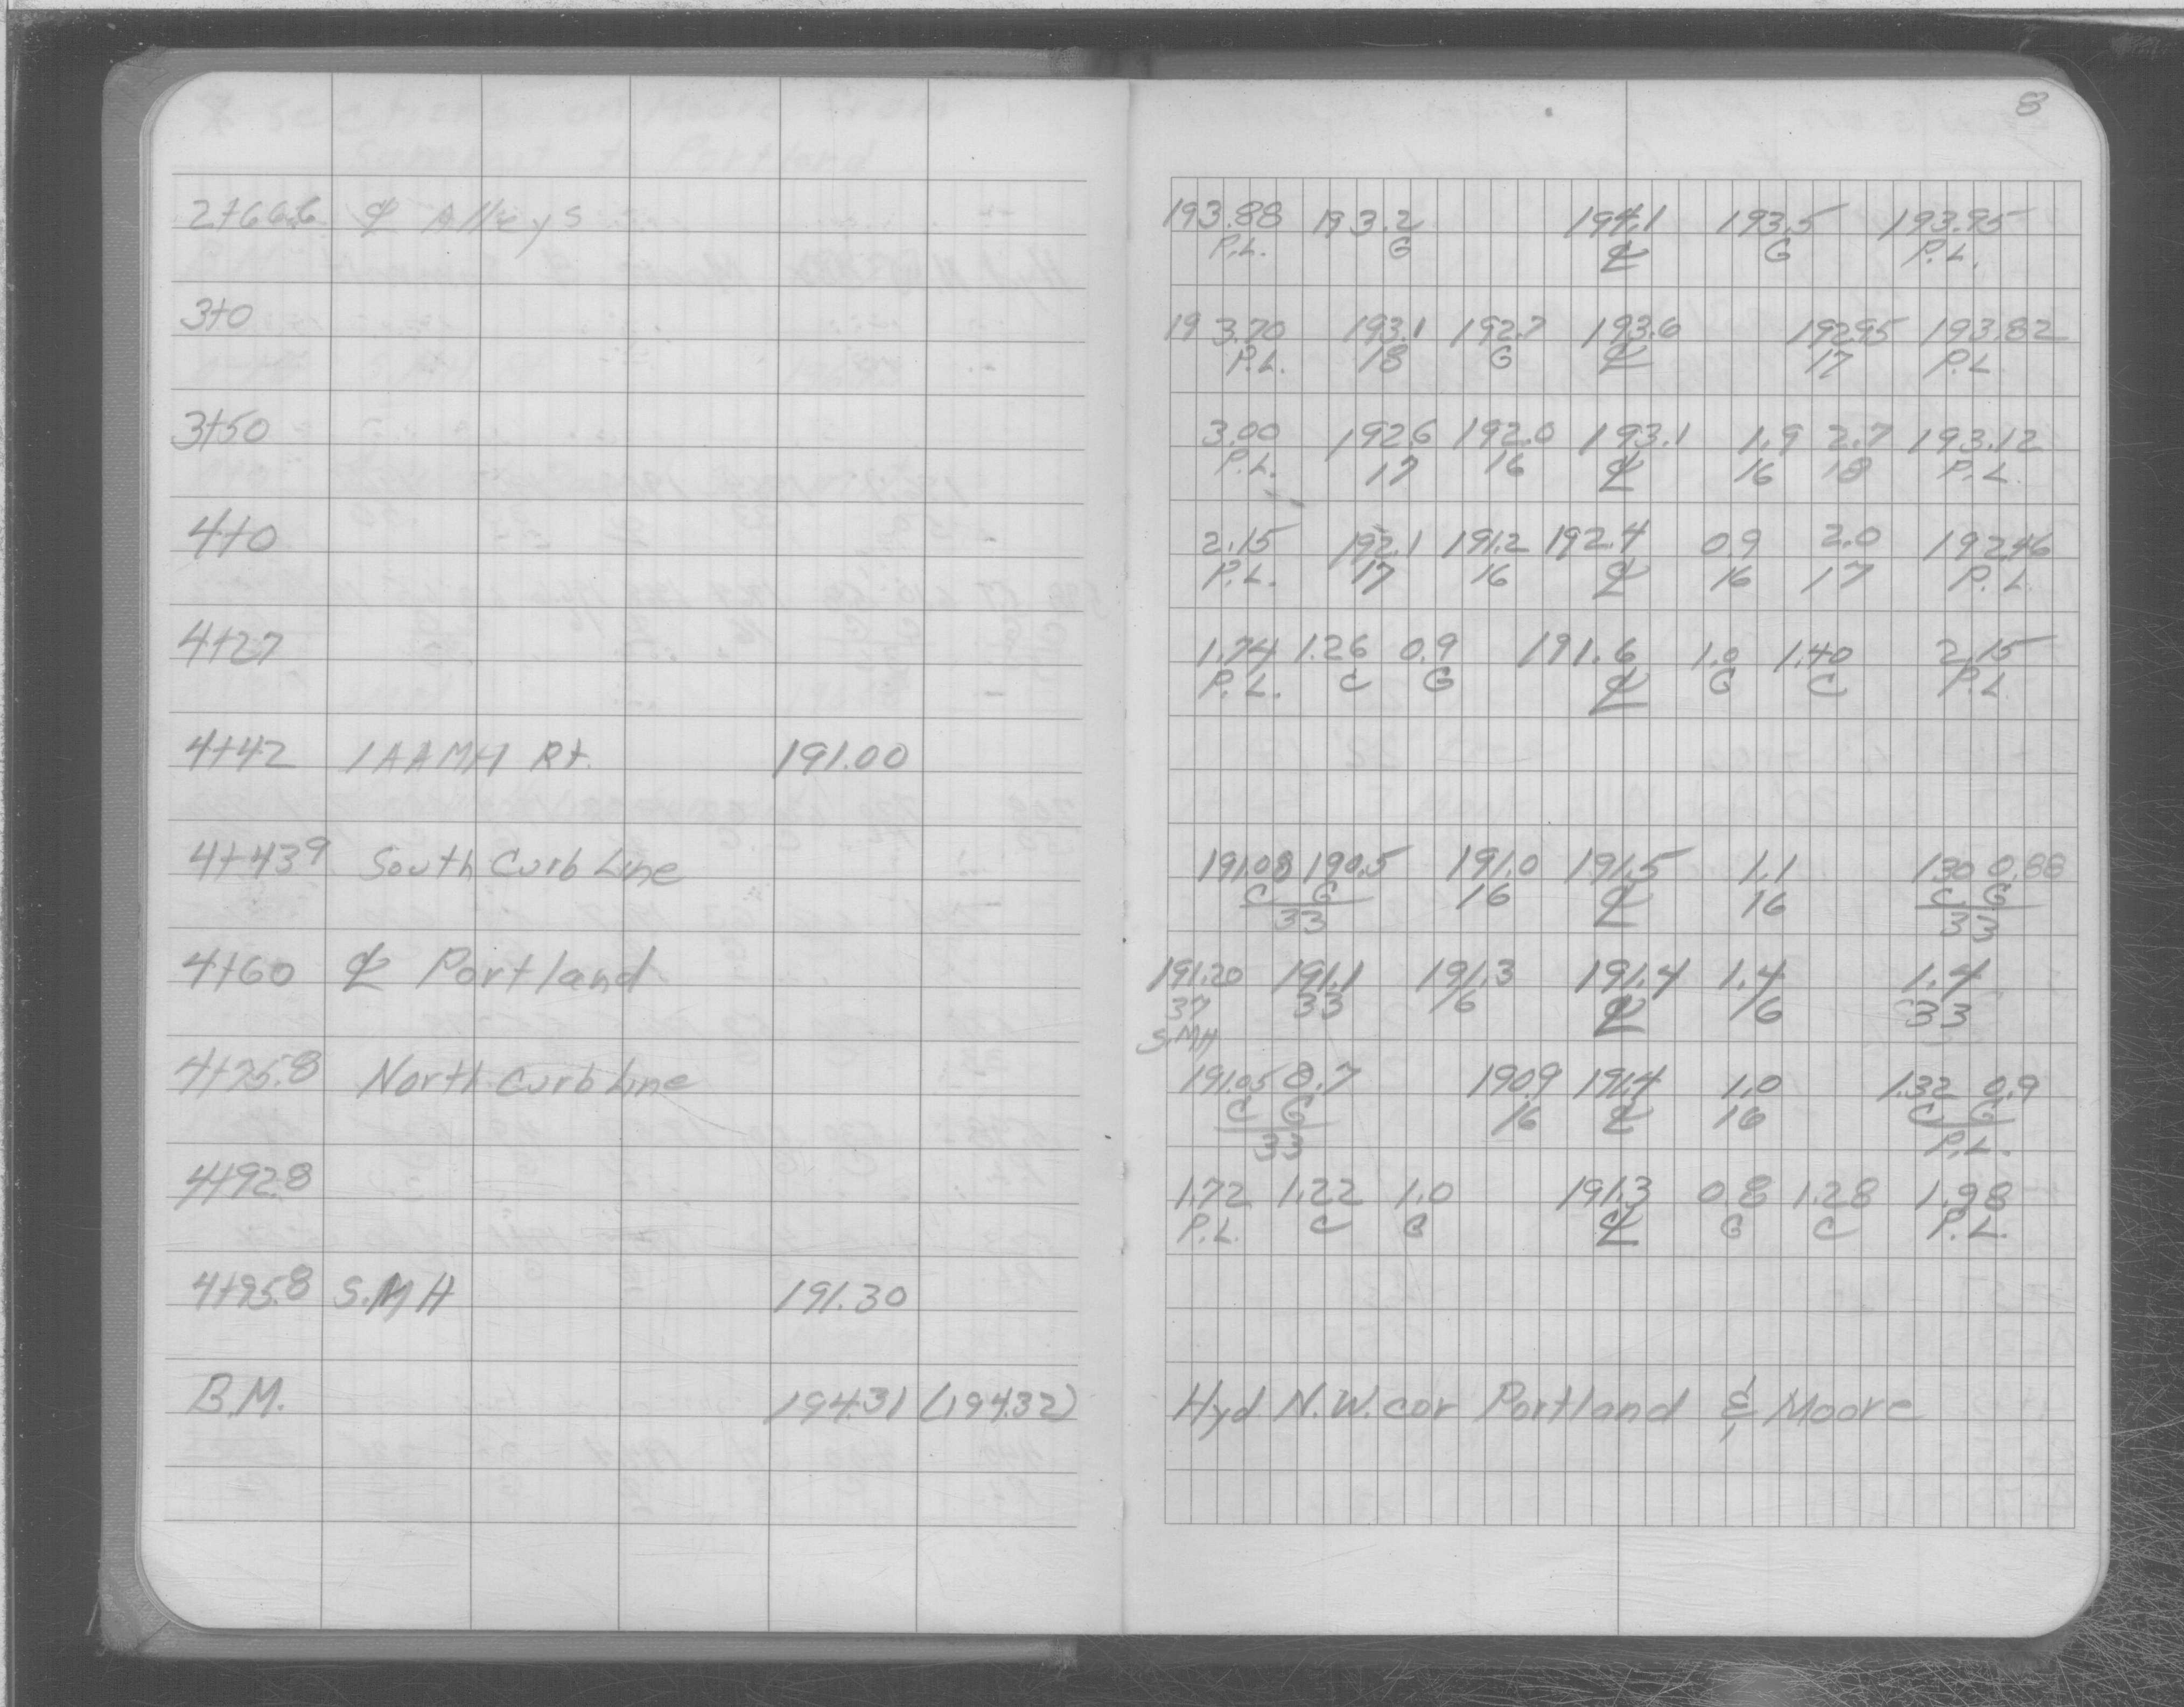 8
2+66.6 ℄ Alleys
193.88 193.2 194.1 193.5 193.95
P.L. G ℄ G P.L.
3+0
193.70 193.1 192.7 193.6 192.95 193.82
P.L. 18 G ℄ 17 P.L.
3+50
3.00 192.6 192.0 193.1 1.9 2.7 193.12
P.L. 17 16 ℄ 16 18 P.L.
4+0
2.15 192.1 191.2 192.4 0.9 2.0 192.46
P.L. 17 16 ℄ 16 17 P.L.
4+27
1.74 1.26 0.9 191.6 1.0 1.40 2.15
P.L. C G ℄ G C P.L.
4+42 1AAMH Rt. 191.00
4+43⁹ South Curb Line
191.08 190.5 191.0 191.5 1.1 1.30 0.88
C G 16 ℄ 16 C G
33 33
4+60 ℄ Portland
191.20 191.1 191.3 191.4 1.4 1.4
37 33 16 ℄ 16 33
S.MH
4+75.8 North Curb Line
191.05 0.7 190.9 191.4 1.0 1.32 0.9
C G 16 ℄ 16 C G
33 P.L.
4+92.8
1.72 1.22 1.0 191.3 0.8 1.28 1.98
P.L. C G ℄ G C P.L.
4+95.8 S.MH 191.30
B.M. 194.31 (194.32) Hyd N.W. cor Portland & Moore